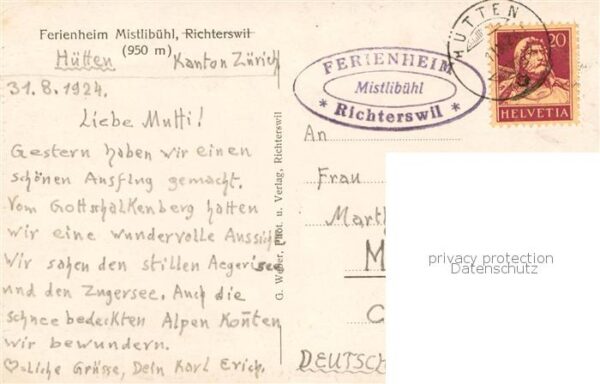 Ferienheim Mistlibühl, Richterswil
(950 m)
Hütten Kanton Zürich
31.8.1924.
Liebe Mutti!
Gestern haben wir einen
schönen Ausflug gemacht.
Vom Gottschalkenberg hatten
wir eine wundervolle Aussich
Wir sahen den stillen Aegerisee
und den Zugersee. Auch die
schneebedeckten Alpen konnten
wir bewundern.
♡liche Grüsse, Dein Karl Erich.
G. Weber, Phot. u. Verlag, Richterswil
FERIENHEIM
Mistlibühl
* Richterswil *
HÜTTEN
20
HELVETIA
An
Frau
Marth
M
C
DEUTSCH
privacy protection
Datenschutz